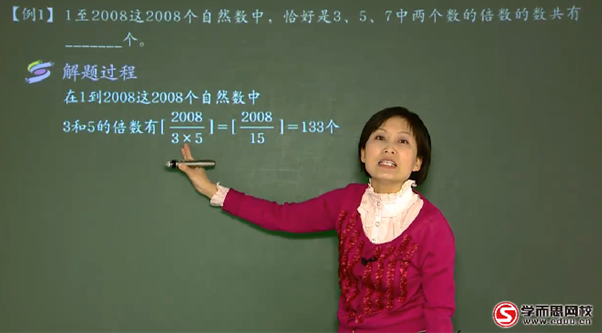 【例1】1至2008这2008个自然数中，恰好是3、5、7中两个数的倍数的数共有
_______个。
解题过程
在1到2008这2008个自然数中
3和5的倍数有[2008/3×5]=[2008/15]=133个
学而思网校
www.eduu.cn